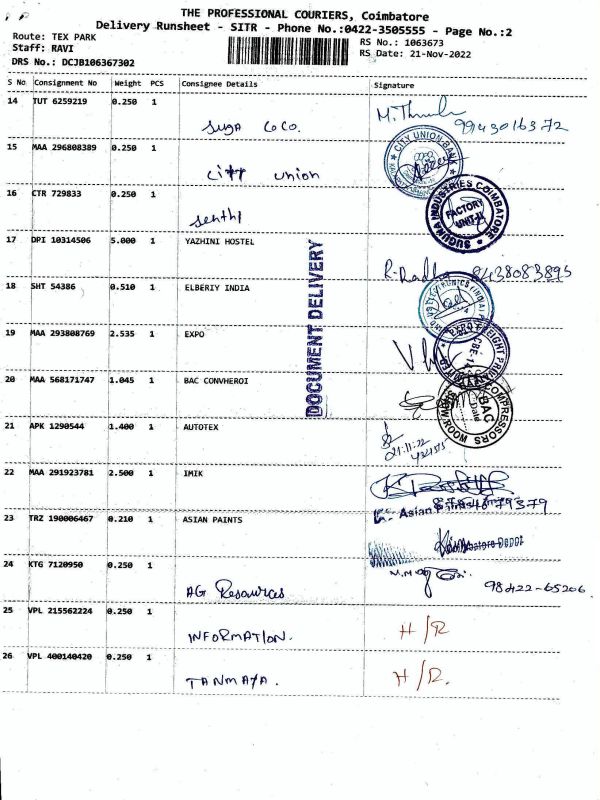 THE PROFESSIONAL COURIERS, Coimbatore
Delivery Runsheet - SITR - Phone No.:0422-3505555 - Page No.:2
Route: TEX PARK
Staff: RAVI
DRS No.: DCJB106367302
RS No.: 1063673
RS Date: 21-Nov-2022
S No Consignment No Weight PCS Consignee Details Signature
14 TUT 6259219 0.250 1
Suga COCO. 9943016372
15 MAA 296808389 0.250 1
City union
CITY UNION BANK
16 CTR 729833 0.250 1
Senthi
SUGUNA INDUSTRIES COIMBATORE
FACTORY
UNIT-II
17 DPI 10314506 5.000 1 YAZHINI HOSTEL
R. Radha 8438083895
DOCUMENT DELIVERY
18 SHT 54386 0.510 1 ELBERIY INDIA
19 MAA 293808769 2.535 1 EXPO
20 MAA 568171747 1.045 1 BAC CONVHEROI
BAC
COMPRESSORS
21 APK 1290544 1.400 1 AUTOTEX
22 MAA 291923781 2.500 1 IMIK
23 TRZ 190006467 0.210 1 ASIAN PAINTS
Asian
Depot
24 KTG 7120950 0.250 1
AG Resources 98422-65206.
25 VPL 215562224 0.250 1
INFORMATION. H/R
26 VPL 400140420 0.250 1
TANMAYA. H/R.